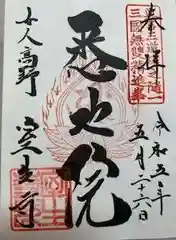 奉拝
令和五年
五月二十六日
悉地院
女人高野
室生寺